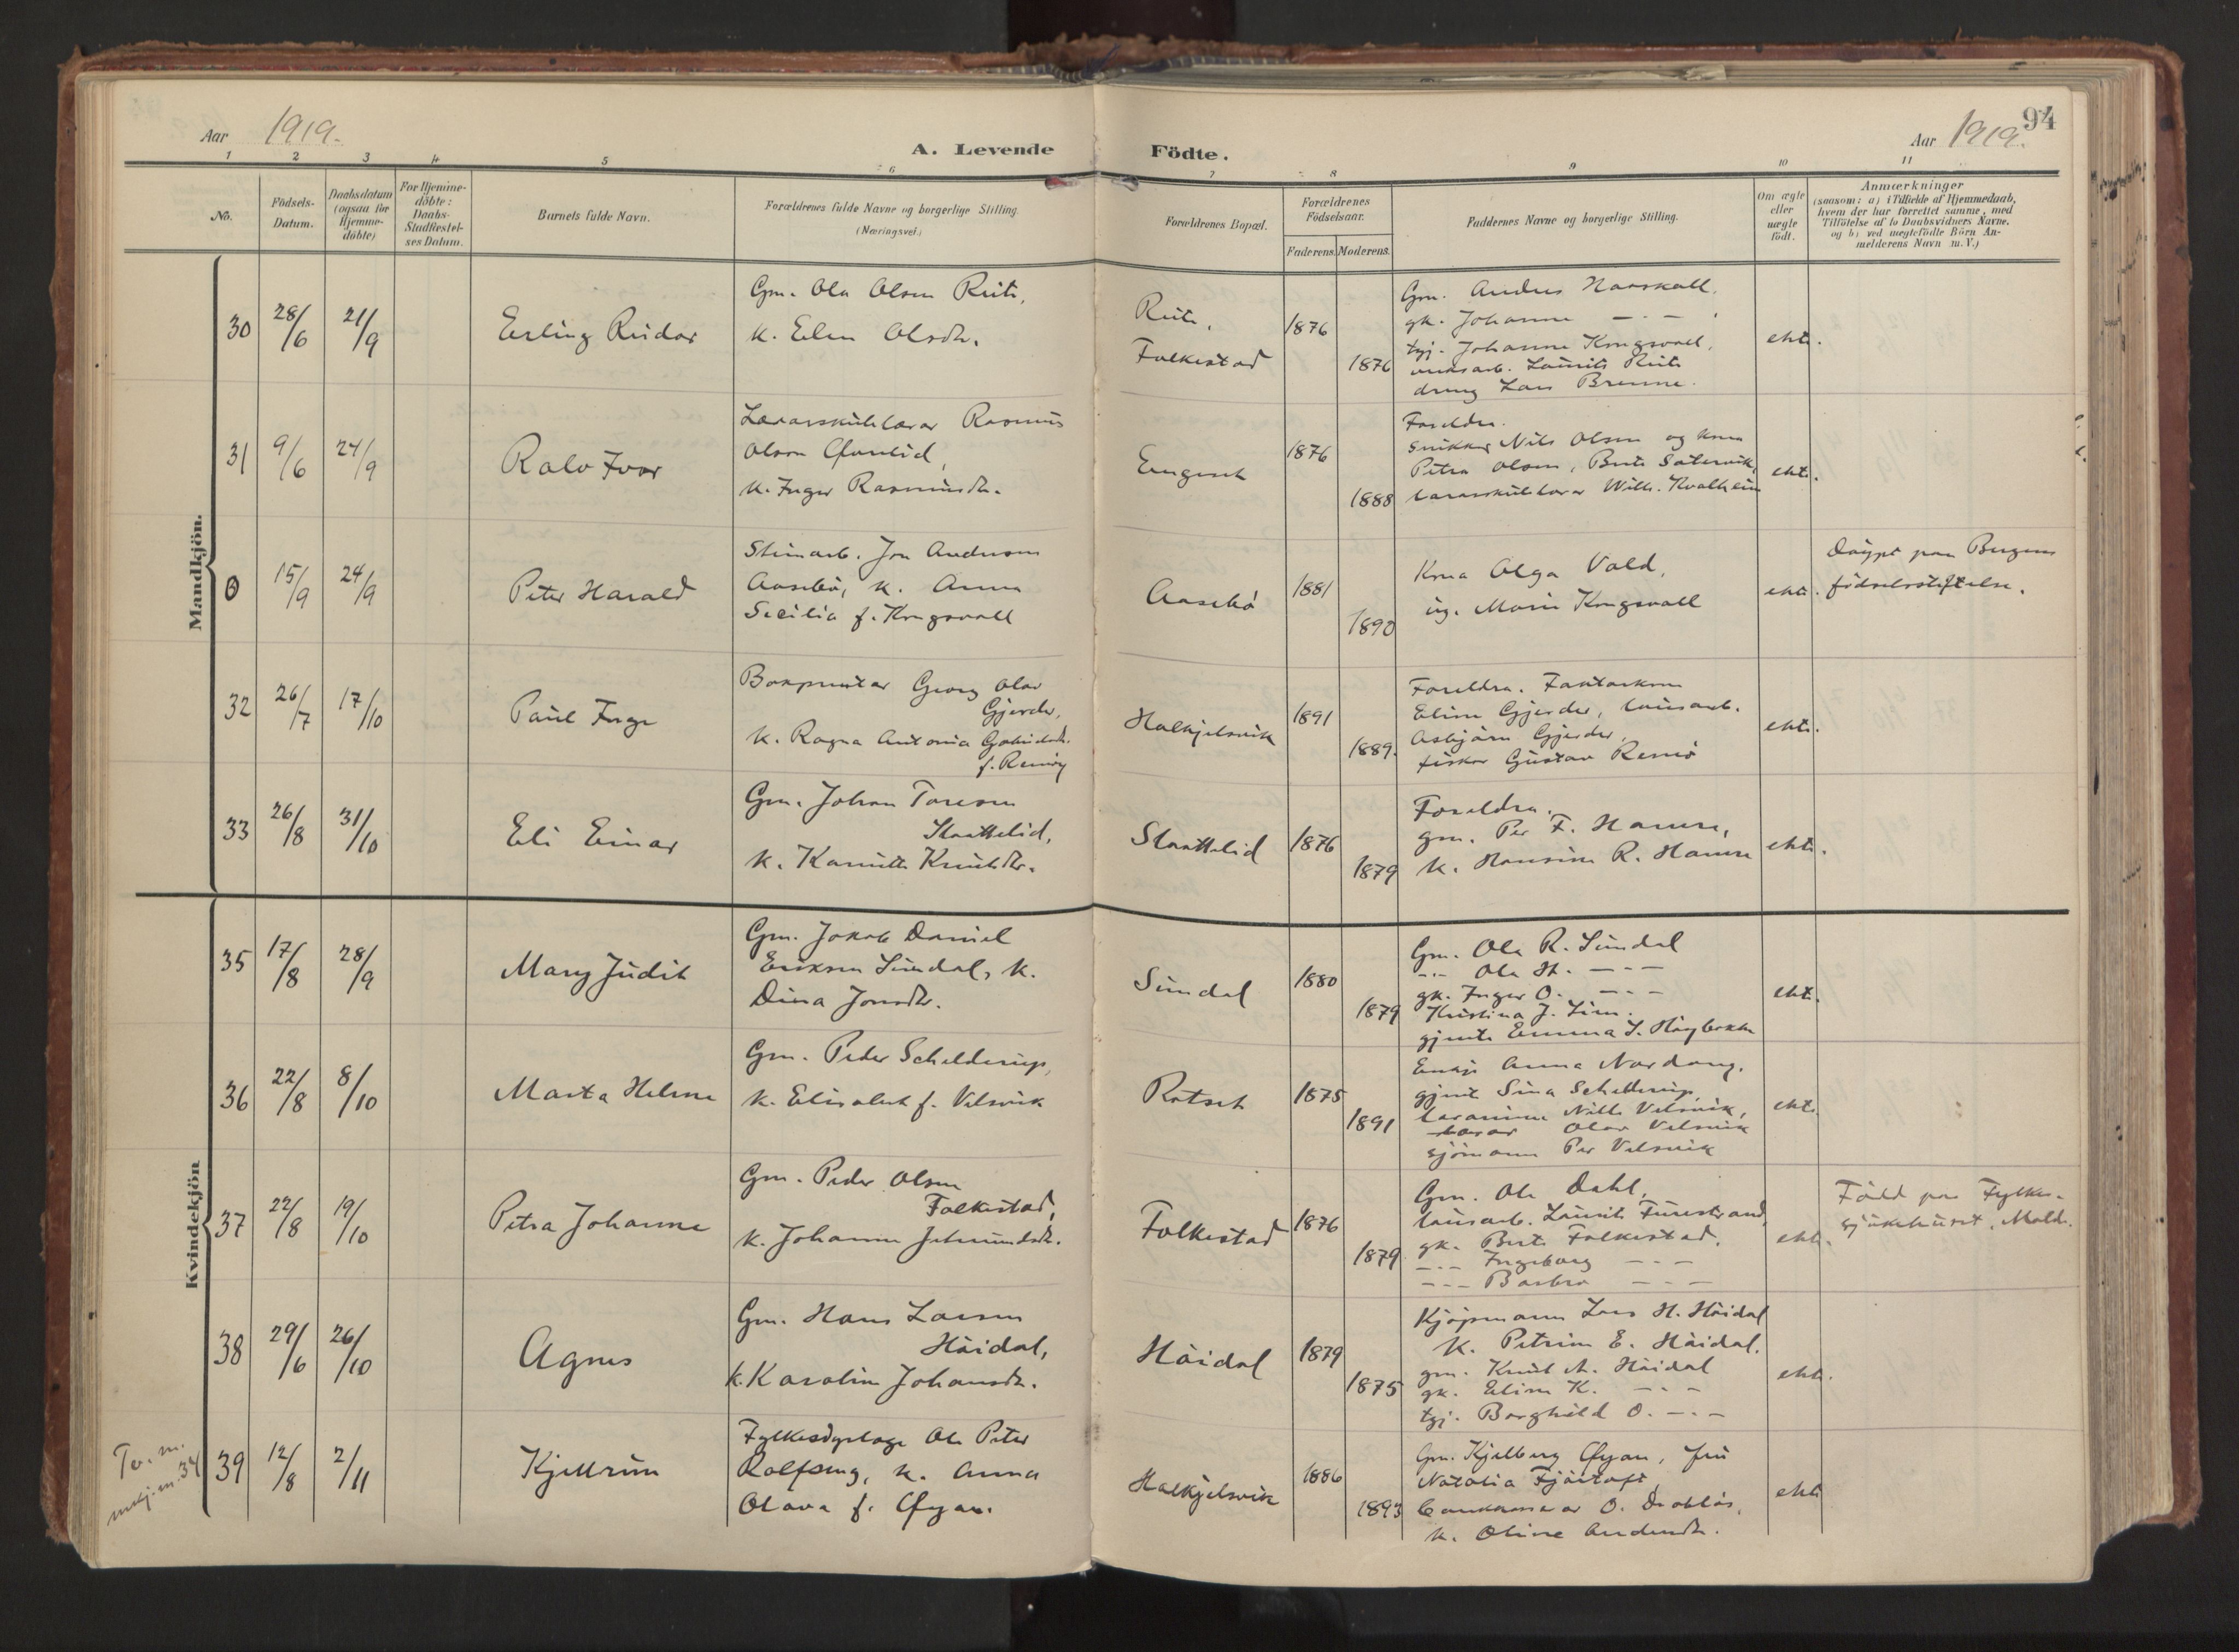 94
Aar 1919.
A. Levende
Födte.
Aar 1919.
1 2 3 4 5 6 7 8 9 10 11
No.
Födsels-
Datum.
Daabsdatum
(ogsaa for
Hjemme-
döbte)
For Hjemme-
döbte:
Daabs-
Stadfestel-
ses Datum.
Barnets fulde Navn.
Forældrenes fulde Navne og borgerlige Stilling.
(Næringsvei.)
Forældrenes Bopæl.
Forældrenes
Födselsaar.
Faderens. Moderens.
Faddernes Navne og borgerlige Stilling.
Om ægte
eller
uægte
födt.
Anmærkninger
(saasom: a) i Tilfælde af Hjemmedaab,
hvem der har forrettet samme, med
Tilföielse af to Daabsvidners Navne.
og b) ved uægtefödte Börn An-
melderens Navn m. V.)
Mandkjön.
30
28/6
21/9
Erling Reidar
Gm. Ola Olsen
K. Elen Olsdtr.
Folkestad
1876
1876
Gm. Anders
gk. Johanne — . — .
tgj. Johanne Kongsvoll.
dreng Lars Brenne.
ekte.
31
9/6
24/9
Rolv Ivar
Lærarskulelærar Rasmus
Olson
K. Inger Rasmusdtr.
Engeset
1876
1888
Foreldra.
Snikkar Nils Olsen og kona
Petra Olsen, Berte Sætervik,
lærarskulelærar Wilh. Kvalheim
ekte.
0
15/9
24/9
Peter Harald
Jon Andersen
Aasebø, K. Anna
Sesilia f. Kongsvoll
Aasebø
1881
1890
Kona Olga Vold,
ug. Marie Kongsvoll
ekte.
Døypt paa Bergens
födselsstiftelse.
32
26/7
17/10
Paul Inge
Bokprentar Georg Olav
Gjerde,
K. Ragna Antonia
f. Remøy
Halkjelsvik
1891
1889.
Foreldra.
Eline Gjerde, lausarb.
Asbjørn Gjerde,
fiskar Gustav Remø
ekte.
33
26/8
31/10
Eli Einar
Gm. Johan Toresen
Slaattelid,
K. Kanutte Knutsdtr.
Slaattelid
1876
1879
Foreldra.
gm. Per F. Hamre,
K. Hansine R. Hamre
ekte.
Kvindekjön
35
17/8
28/9
Mary Judit
Gm. Jakob Daniel
Eriksen Sundal, K.
Dina Jonsdtr.
Sundal
1880
1879
Gm. Ola R. Sundal
-.- Ola H. — - —
gk. Inger O. — - —
Kristina J.
gjente Emma S.
ekte.
36
22/8
8/10
Marta Helene
Gm. Peder Schelderup,
K. Elisabet f. Velsvik
Rotset
1875
1891
Enkje Anna Nordang.
gjente Sina Schelderup,
lærarinne Nille Velsvik,
lærar Olav Velsvik
sjømann Per Velsvik
ekte.
37
22/8
19/10
Petra Johanne
Gm. Peder Olsen
Folkestad,
K. Johanne
Folkestad
1876
1879
Gm. Ole Dahl,
lausarb. Laurits Furestrand,
gk. Berte Folkestad.
— . — Ingeborg — - —
— - — Barbro — - —
ekte.
Född paa Fylkes-
sjukehuset, Molde.
38
29/6
26/10
Agnes
Gm. Hans Larsen
Höidal,
K. Karoline Johansdtr.
Höidal
1879
1875
Kjöpmann Lars H. Höidal
K. Petrine E. Höidal.
gm. Knut A. Höidal
gk. Eline K. — - —
tgj. Borghild O. — . —
ekte.
Tv. m.
mkj. nr. 34
39
12/8
2/11
Kjellrun
Ole Peter
Rolfseng, K. Anna
Olava f. Øyan.
Halkjelsvik
1886
1893
Gm. Kjelberg Øyan, fru
Natalia Fjörtoft,
bankkasserar O. Drabløs,
K. Oline Andersdtr.
ekte